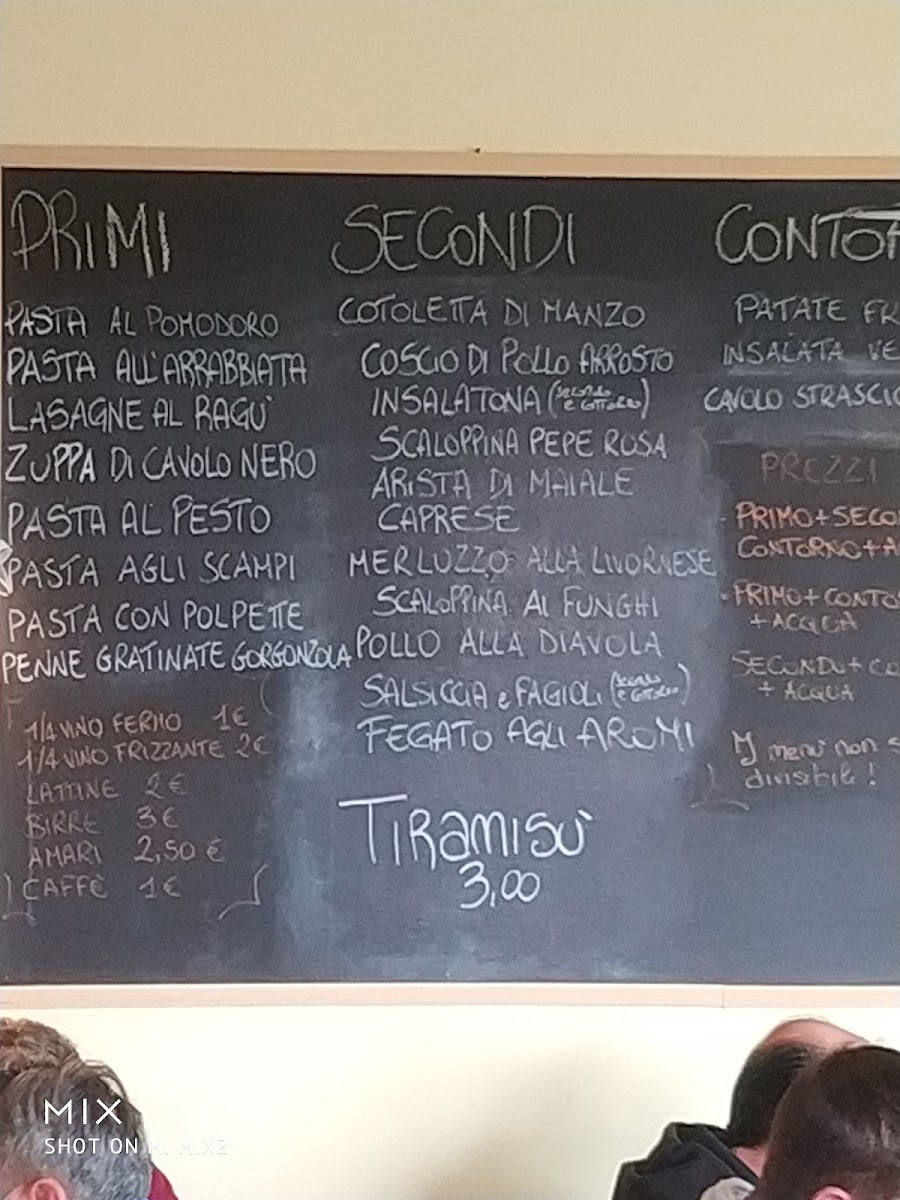 PRIMI
PASTA AL POMODORO
PASTA ALL'ARRABBIATA
LASAGNE AL RAGU'
ZUPPA DI CAVOLO NERO
PASTA AL PESTO
PASTA AGLI SCAMPI
PASTA CON POLPETTE
PENNE GRATINATE GORGONZOLA
1/4 VINO FERMO 1€
1/4 VINO FRIZZANTE 2€
LATTINE 2€
BIRRE 3€
AMARI 2,50 €
CAFFÈ 1€
SECONDI
COTOLETTA DI MANZO
COSCIO DI POLLO ARROSTO
INSALATONA (SECONDO
E CONTORNO)
SCALOPPINA PEPE ROSA
ARISTA DI MAIALE
CAPRESE
MERLUZZO ALLA LIVORNESE
SCALOPPINA AI FUNGHI
POLLO ALLA DIAVOLA
SALSICCIA e FAGIOLI (SECONDO
E CONTORNO)
FEGATO AGLI AROMI
TIRAMISU'
3,00
CONTO
PATATE FR
INSALATA VE
CAVOLO STRASCIC
PREZZI
PRIMO+SECO
CONTORNO+A
PRIMO+CONTO
+ACQUA
SECONDO+CO
+ ACQUA
I menù non s
divisibili!
MIX
SHOT ON MI MIX2